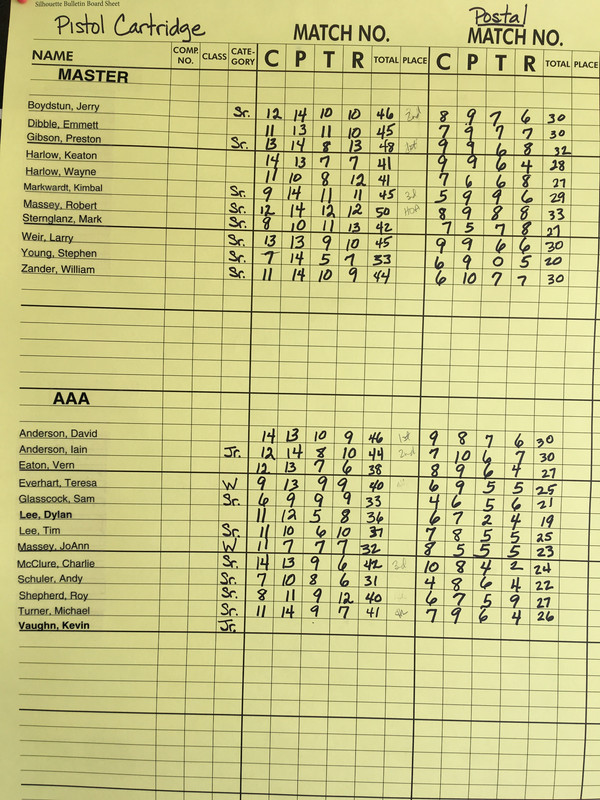 Silhouette Bulletin Board Sheet
Pistol Cartridge MATCH NO. Postal MATCH NO.
NAME COMP. NO. CLASS CATE-GORY C P T R TOTAL PLACE C P T R TOTAL PLACE
MASTER
Boydstun, Jerry Sr. 12 14 10 10 46 2nd 8 9 7 6 30
Dibble, Emmett 11 13 11 10 45 7 9 7 7 30
Gibson, Preston Sr. 13 14 8 13 48 1st 9 9 6 8 32
Harlow, Keaton 14 13 7 7 41 9 9 6 4 28
Harlow, Wayne 11 10 8 12 41 7 6 6 8 27
Markwardt, Kimbal Sr. 9 14 11 11 45 3d 5 9 9 6 29
Massey, Robert Sr. 12 14 12 12 50 HOA 8 9 8 8 33
Sternglanz, Mark Sr. 8 10 11 13 42 7 5 7 8 27
Weir, Larry Sr. 13 13 9 10 45 9 9 6 6 30
Young, Stephen Sr. 7 14 5 7 33 6 9 0 5 20
Zander, William Sr. 11 14 10 9 44 6 10 7 7 30
AAA
Anderson, David 14 13 10 9 46 1st 9 8 7 6 30
Anderson, Iain Jr. 12 14 8 10 44 2nd 7 10 6 7 30
Eaton, Vern 12 13 7 6 38 8 9 6 4 27
Everhart, Teresa W 9 13 9 9 40 6 9 5 5 25
Glasscock, Sam Sr. 6 9 9 9 33 4 6 5 6 21
Lee, Dylan 11 12 5 8 36 6 7 2 4 19
Lee, Tim Sr. 11 10 6 10 37 7 8 5 5 25
Massey, JoAnn W 11 7 7 7 32 8 5 5 5 23
McClure, Charlie Sr. 14 13 9 6 42 3d 10 8 4 2 24
Schuler, Andy Sr. 7 10 8 6 31 4 8 6 4 22
Shepherd, Roy Sr. 8 11 9 12 40 6 7 5 9 27
Turner, Michael Sr. 11 14 9 7 41 7 9 6 4 26
Vaughn, Kevin Jr.